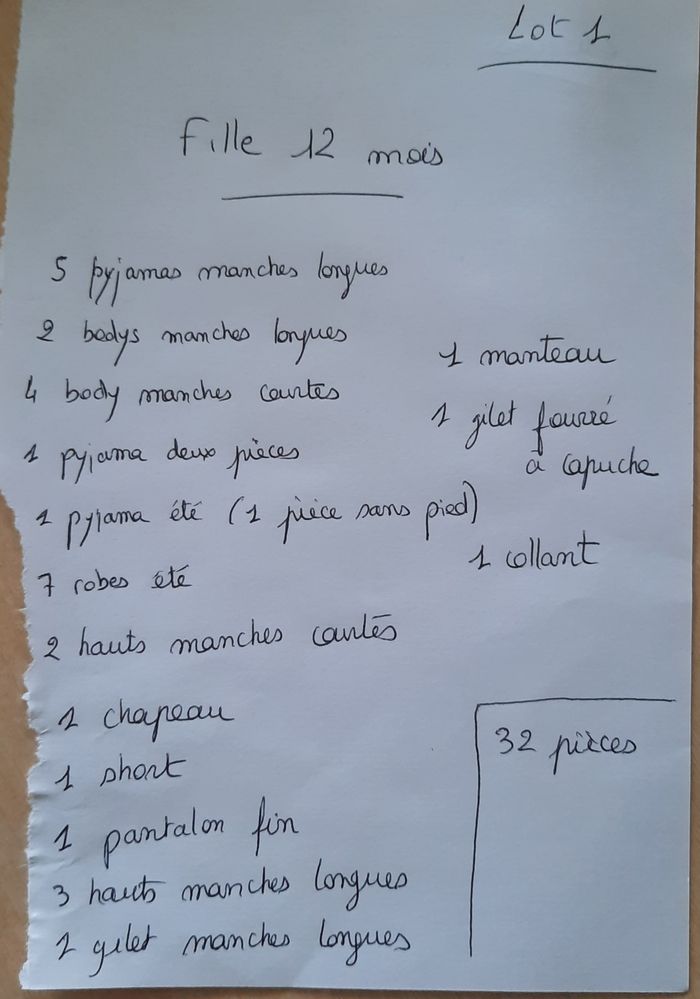 Lot 1
Fille 12 mois
5 pyjamas manches longues
2 bodys manches longues
4 body manches courtes
1 pyjama deux pièces
1 pyjama été (1 pièce sans pied)
7 robes été
2 hauts manches courtes
1 chapeau
1 short
1 pantalon fin
3 hauts manches longues
1 gilet manches longues
1 manteau
1 gilet fourré
à capuche
1 collant
32 pièces